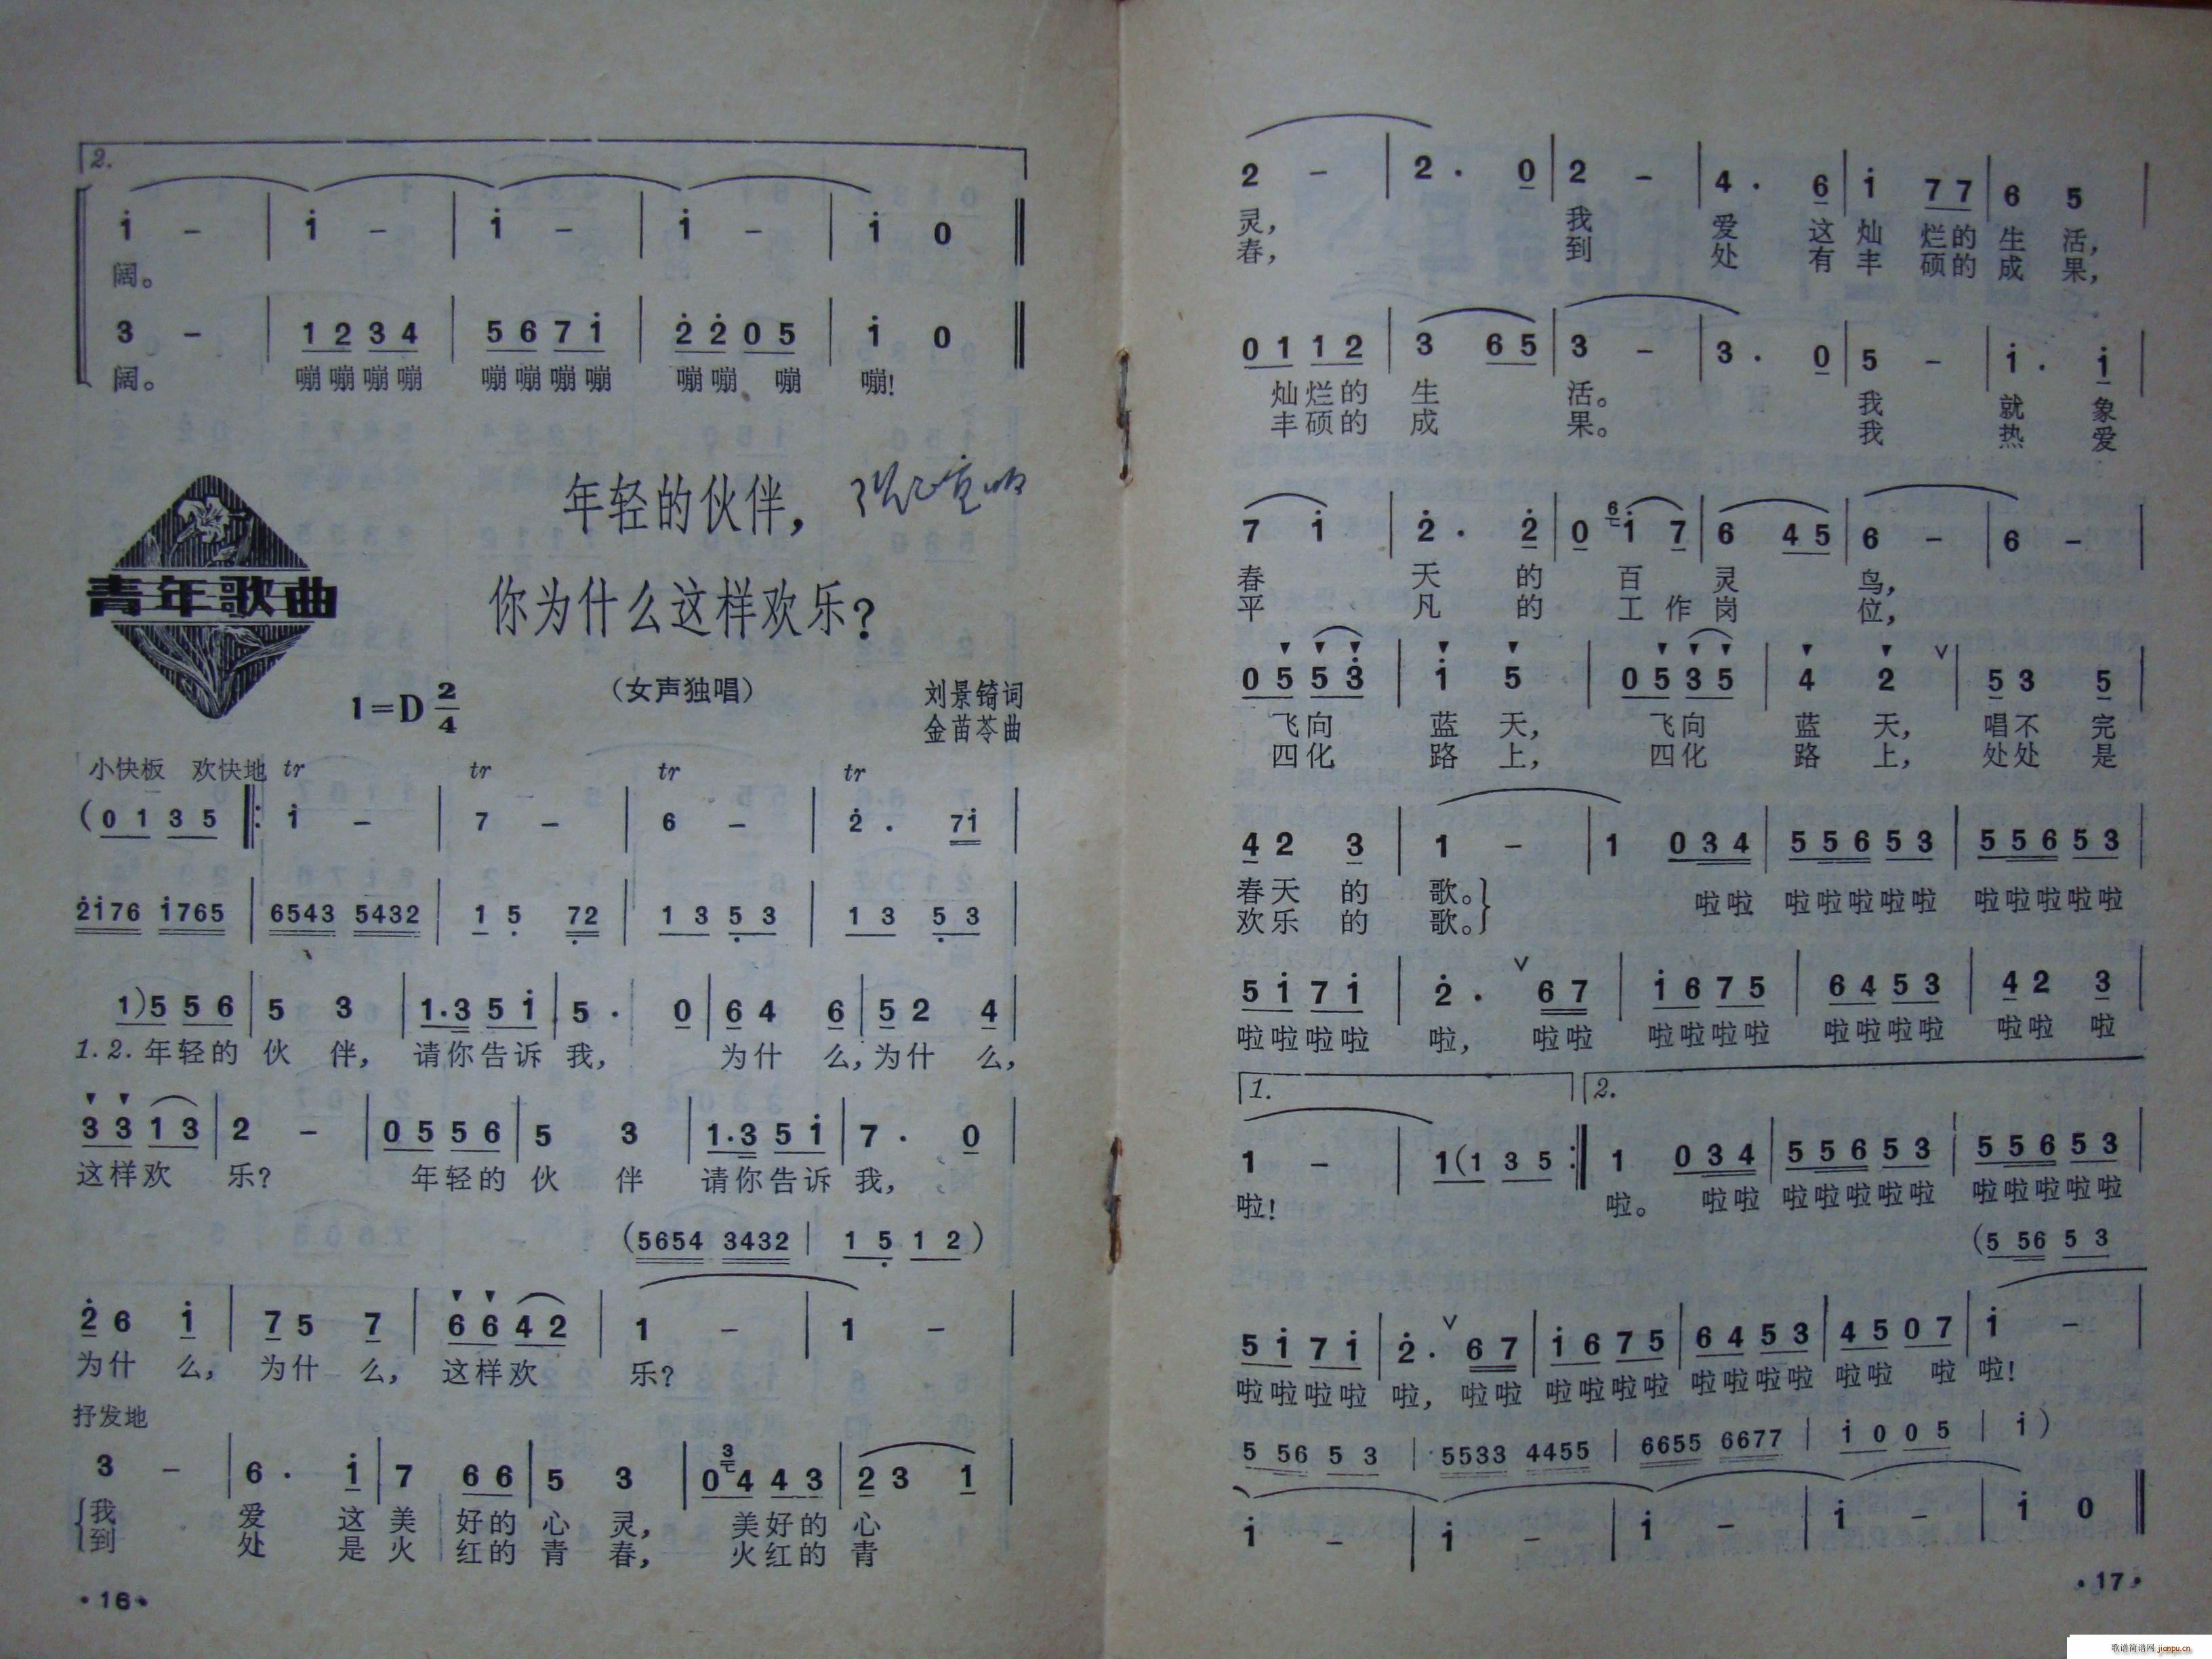 2.
i - | i - | i - | i - | i 0
阔。
3 - | 1 2 3 4 | 5 6 7 i | 2 2 0 5 | i 0
阔。 嘣嘣嘣嘣 嘣嘣嘣嘣 嘣嘣 嘣 嘣!
年轻的伙伴,
你为什么这样欢乐?
青年歌曲
(女声独唱)
1=D 2/4
刘景锜词
金苗苓曲
小快板 欢快地 tr tr tr tr
(0 1 3 5 |: i - | 7 - | 6 - | 2 . 7i |
2i76 i765 | 6543 5432 | 1 5 72 | 1 3 5 3 | 1 3 5 3 |
1)5 5 6 | 5 3 | 1.3 5 i | 5 . 0 | 6 4 6 | 5 2 4 |
1.2.年轻的 伙 伴, 请你告诉 我, 为什 么,为什 么,
3 3 1 3 | 2 - | 0 5 5 6 | 5 3 | 1.3 5 i | 7 . 0 |
这样欢 乐? 年轻的 伙 伴 请你告诉 我,
(5654 3432 | 1 5 1 2)
2 6 i | 7 5 7 | 6 6 4 2 | 1 - | 1 - |
为什 么, 为什 么, 这样欢 乐?
抒发地
3 - | 6 . i | 7 6 6 | 5 3 | 0 3 4 4 3 | 2 3 1 |
我 爱 这 美 好的 心 灵, 美好的 心
到 处 是 火 红的 青 春, 火红的 青
·16·
2 - | 2 . 0 | 2 - | 4 . 6 | i 7 7 | 6 5 |
灵, 我 爱 这 灿 烂的 生 活,
春, 到 处 有 丰 硕的 成 果,
0 1 1 2 | 3 6 5 | 3 - | 3 . 0 | 5 - | i . i |
灿烂的 生 活。 我 就 象
丰硕的 成 果。 我 热 爱
7 i | 2 . 2 | 0 6 i 7 | 6 4 5 | 6 - | 6 - |
春 天 的 百 灵 鸟,
平 凡 的 工 作 岗 位,
0 5 5 3 | i 5 | 0 5 3 5 | 4 2 V | 5 3 5 |
飞向 蓝 天, 飞向 蓝 天, 唱不 完
四化 路 上, 四化 路 上, 处处 是
4 2 3 | 1 - | 1 0 3 4 | 5 5 6 5 3 | 5 5 6 5 3 |
春天 的 歌。 啦啦 啦啦啦啦啦 啦啦啦啦啦
欢乐 的 歌。
5 i 7 i | 2 . V 6 7 | i 6 7 5 | 6 4 5 3 | 4 2 3 |
啦啦啦啦 啦, 啦啦 啦啦啦啦 啦啦啦啦 啦啦 啦
1. 2.
1 - | 1(1 3 5 :| 1 0 3 4 | 5 5 6 5 3 | 5 5 6 5 3 |
啦! 啦。 啦啦 啦啦啦啦啦 啦啦啦啦啦
(5 56 5 3
5 i 7 i | 2 . V 6 7 | i 6 7 5 | 6 4 5 3 | 4 5 0 7 | i - |
啦啦啦啦 啦, 啦啦 啦啦啦啦 啦啦啦啦 啦啦 啦 啦!
5 56 5 3 | 5533 4455 | 6655 6677 | i 0 0 5 | i )
i - | i - | i - | i - | i 0
·17·
歌谱简谱网 jianpu.cn